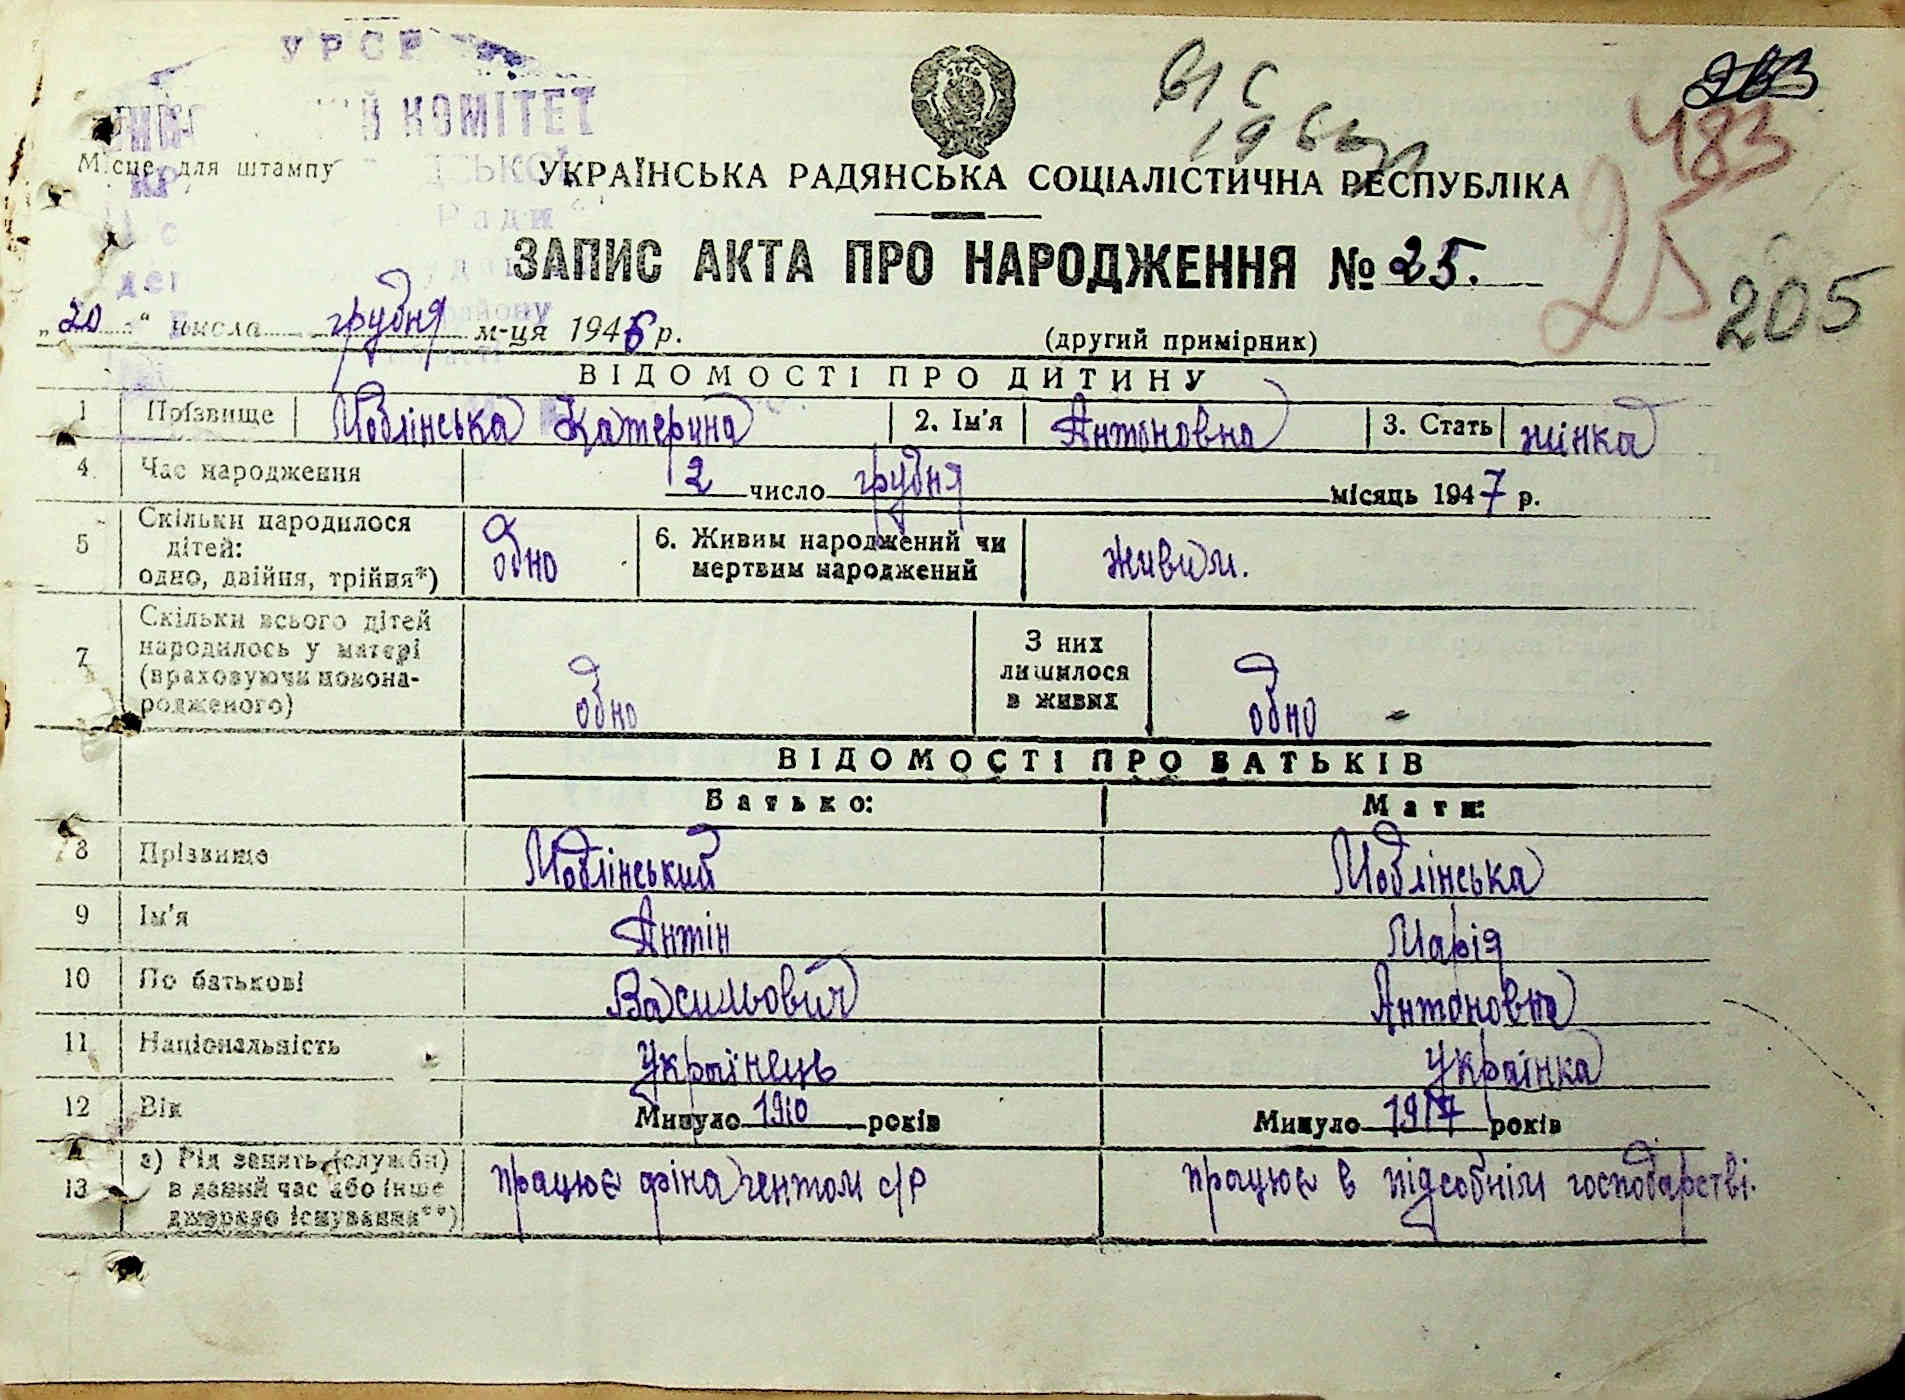 УРСР
КОМІТЕТ
Місце для штампу
Ради
району
ВІС
283
483
25
205
УКРАЇНСЬКА РАДЯНСЬКА СОЦІАЛІСТИЧНА РЕСПУБЛІКА
ЗАПИС АКТА ПРО НАРОДЖЕННЯ № 25.
„20“ числа грудня м-ця 1946 р.
(другий примірник)
ВІДОМОСТІ ПРО ДИТИНУ
1 Прізвище Моблінська Катерина 2. Ім'я Антоновна 3. Стать жінка
4 Час народження 2 число грудня місяць 1947 р.
5 Скільки народилося дітей: одно, двійня, трійня*) одно 6. Живим народжений чи мертвим народжений живим.
7 Скільки всього дітей народилось у матері (враховуючи новонародженого) одно З них лишилося в живих одно
ВІДОМОСТІ ПРО БАТЬКІВ
Батько: Мати:
8 Прізвище Моблінський Моблінська
9 Ім'я Антін Марія
10 По батькові Васильович Антоновна
11 Національність Українець Українка
12 Вік Минуло 1910 років Минуло 1917 років
13 а) Рід занять (служби) в даний час або інше джерело існування**) працює фінагентом с/р працює в підсобнім господарстві.